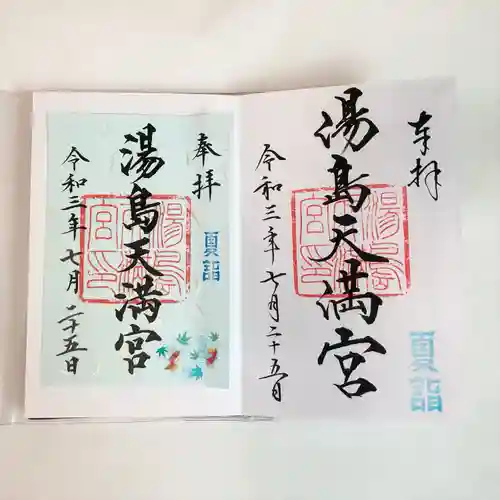 奉拝
湯島天満宮
夏詣
令和三年七月二十五日
奉拝
湯島天満宮
夏詣
令和三年七月二十五日